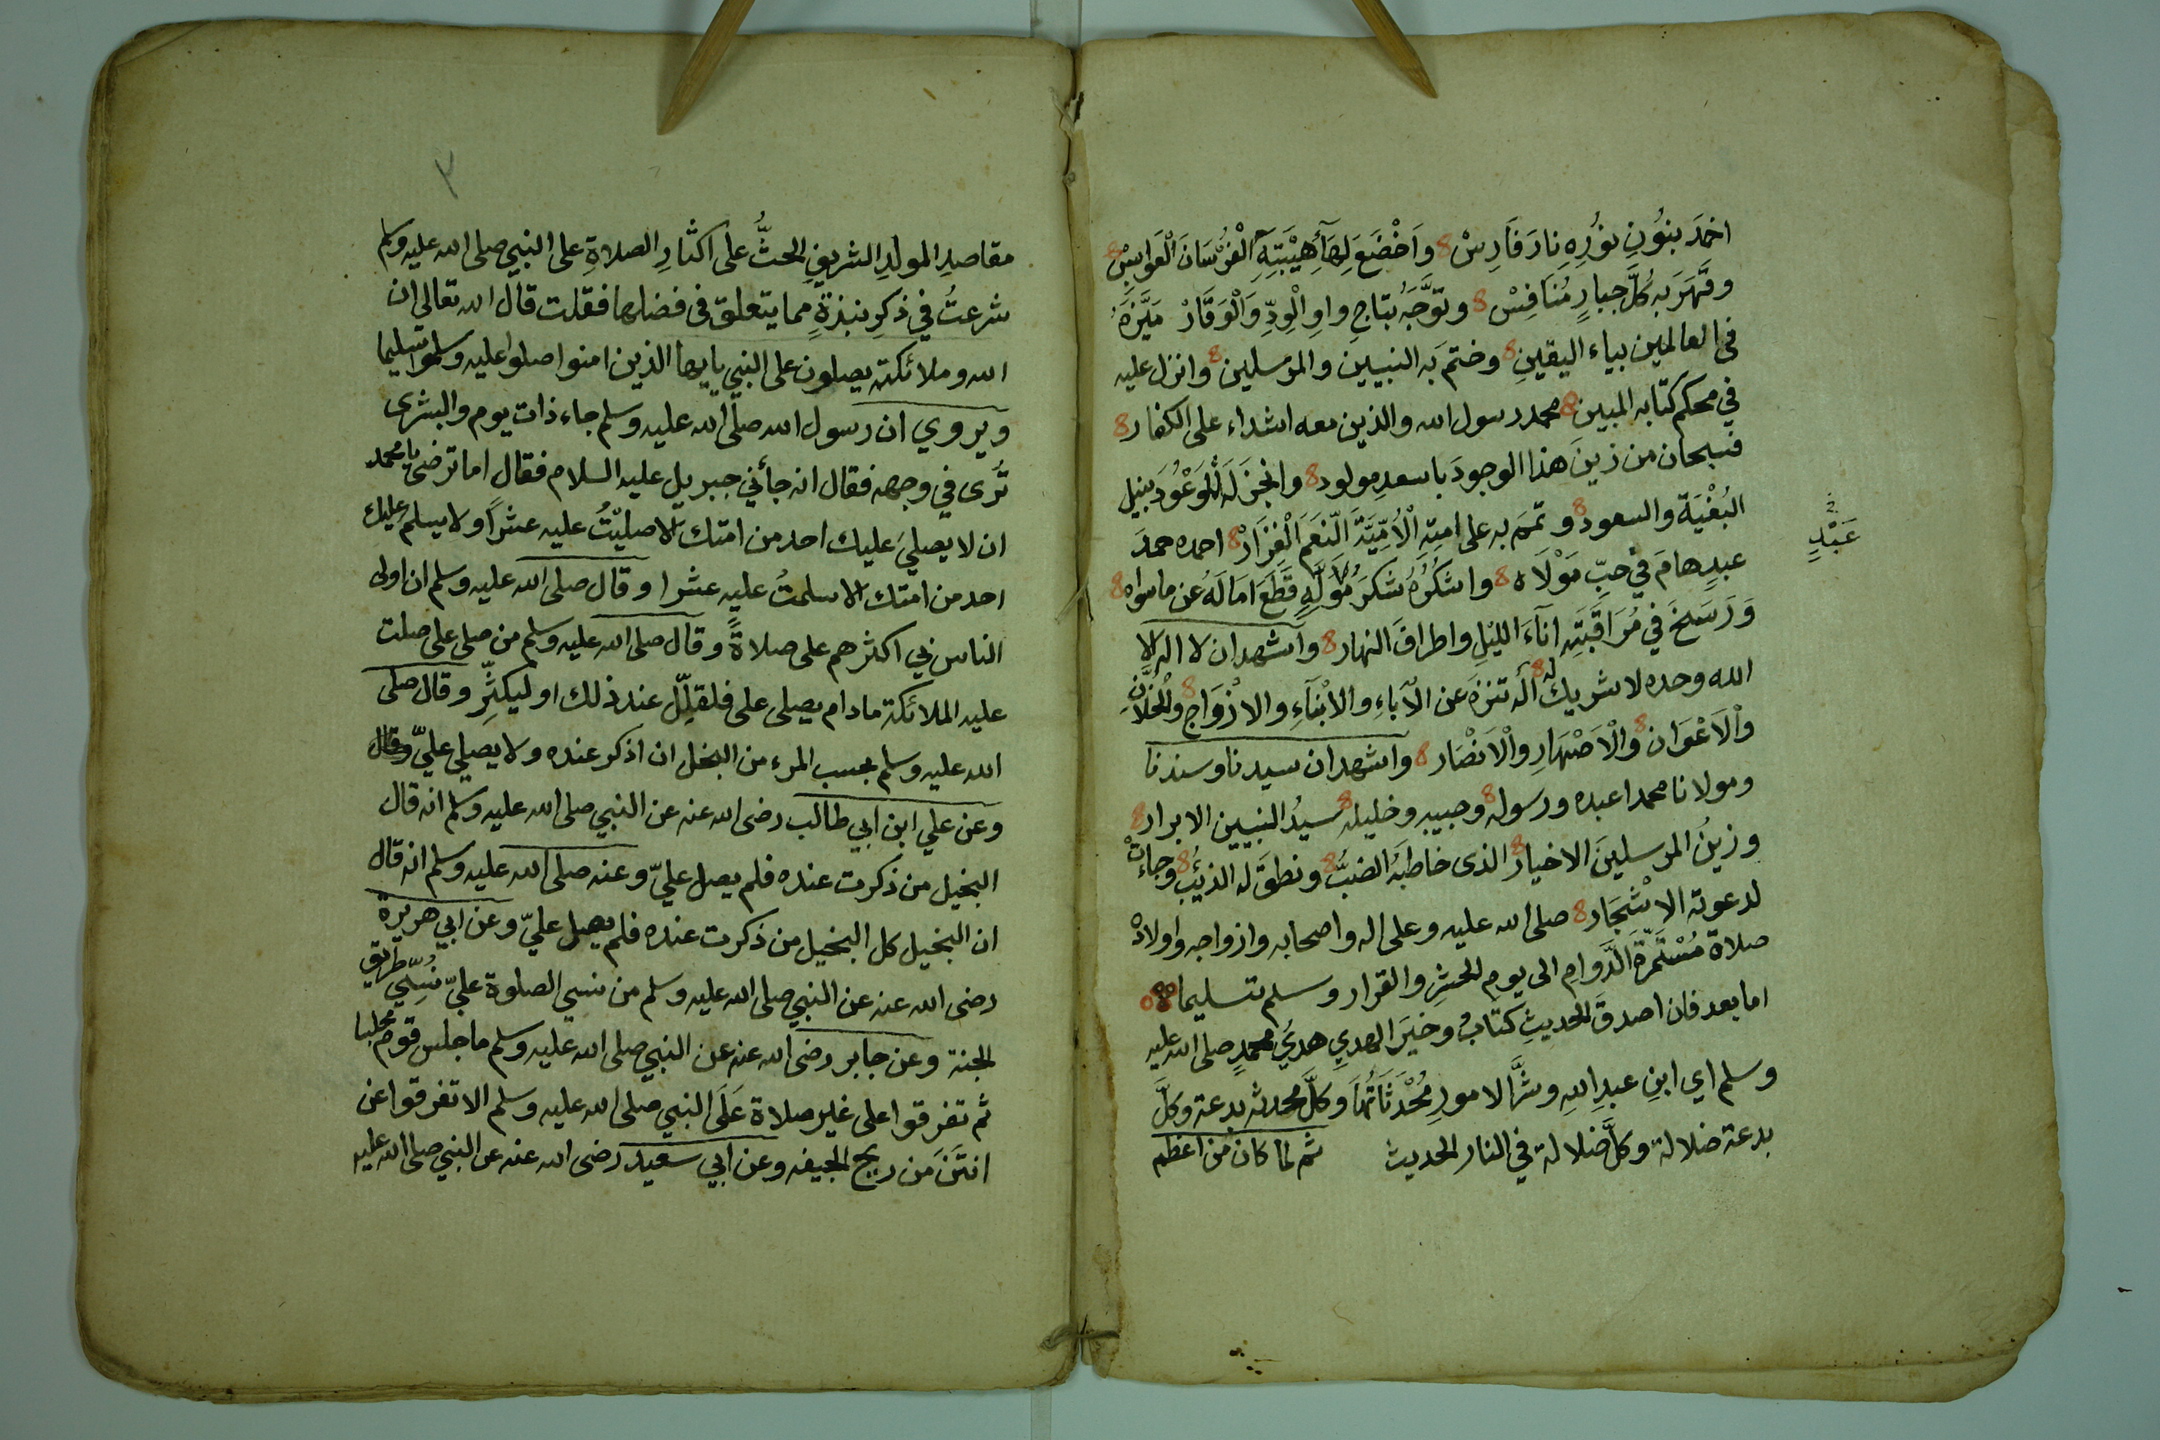 اخمَدَ بنُونِ نورُرِهِ نارَ فَارِسْ وَاَخْضَعَ لِهَآءِ هَيْبَتِهِ الْفُرْسَانَ الْعَوَابِسْ
وقَهَرَ به كُلَّ جبارٍ مُنَافِسْ وتوَّجَهُ بتاجِ واوِ الْوِدِّ وَالْوَقَارْ مَيَّزَهُ
في العالمين بياء اليقينِ وختم به النبيين والمرسلين وانزل عليه
في محكم كتابه المبين محمد رسول الله والذين معه اشداء على الكفار
فسبحان من زينَ هذا الوجودَ باسعدِ مولود وانجزَ لَهُ الْمَوْعُودَ بنيلِ
البُغْيَة والسعود وتممَ به على امتِهِ الْاُمِّيَّةَ النِّعَمَ الْغِزَارْ احمده حمدَ
عبدٍ هامَ في حبِّ مَوْلَاه واشكُرُهُ شكرَ مُوَلَّهٍ قَطَعَ امَالَهُ عن ماسواه
عَبْدٍ
وَرَسَخَ في مُرَاقَبَتِهِ انآءَ الليلِ واطرافَ النهار واشهد ان لا اله الا
الله وحده لا شريك له اله تنزهَ عن الْآباءِ والابْنآءِ والازْوَاجِ والْخُلَّانِ
والْاَعْوَان والْاَصْهَارِ والْاَنْصَار واشهد ان سيدنا وسندنا
ومولانا محمدا عبده ورسوله وحبيبه وخليله سيدُ النبيين الابرار
وزينُ المرسلينَ الاخيار الذى خاطبَهُ الضبُّ ونطقَ له الذئِبُ وجاءتْ
لدعوته الاشْجَار صلى الله عليه وعلى اله واصحابه وازواجه واولادهْ
صلاةً مُسْتَمِرَّةَ الدَّوامِ الى يوم الحشرِ والقرار وسلم تسليما
اما بعد فان اصدقَ الحديثِ كتابُ وخيرَ الهدي هديُ محمدٍ صلى الله عليه
وسلم اي ابنِ عبدِ اللهِ وشرَّ الامورِ مُحْدَثَاتُهَا وكلَّ محدثه بدعة وكلَّ
بدعة ضلالة وكلَّ ضلالة في النار الحديث ثم لما كان من اعظم
٢
مقاصدِ المولدِ الشريفِ الحثُّ على اكثارِ الصلاةِ على النبي صلى الله عليه وسلم
شرعتُ في ذكرِ نبذةٍ مما يتعلق فى فضلها فقلت قال الله تعالى ان
الله وملائكته يصلون على النبي يايها الذين امنوا صلوا عليه وسلموا تسليما
ويروي ان رسول الله صلى الله عليه وسلم جاء ذات يوم والبشرى
تُرى في وجهه فقال انه جأني جبريل عليه السلام فقال اما ترضى يا محمد
ان لا يصليَ عليك احد من امتك الا صليْتُ عليه عشرًا ولا يسلم عليك
احد من امتك الا سلمتُ عليه عشرا وقال صلى الله عليه وسلم ان اولى
الناس بي اكثرهم على صلاةً وقال صلى الله عليه وسلم من صلى على صلت
عليه الملائكة مادام يصلى على فلقلِّل عند ذلك او ليكثِّرِ وقال صلى
الله عليه وسلم بحسب المرء من البخل ان اذكر عنده ولا يصلي عليّ وقال
وعن علي ابن ابي طالب رضى الله عنه عن النبي صلى الله عليه وسلم انه قال
البخيل من ذكرت عنده فلم يصل عليّ وعنه صلى الله عليه وسلم انه قال
ان البخيل كل البخيل من ذكرت عنده فلم يصل عليّ وعن ابي هريرة
رضى الله عنه عن النبي صلى الله عليه وسلم من نسي الصلوة عليّ نُسِّي طريق
الجنة وعن جابر رضى الله عنه عن النبي صلى الله عليه وسلم ما جلس قوم مجلسا
ثم تفرقوا على غير صلاة عَلَى النبي صلى الله عليه وسلم الا تفرقوا عن
انتَنَ من ريح الجيفه وعن ابي سعيد رضى الله عنه عن النبي صلى الله عليه